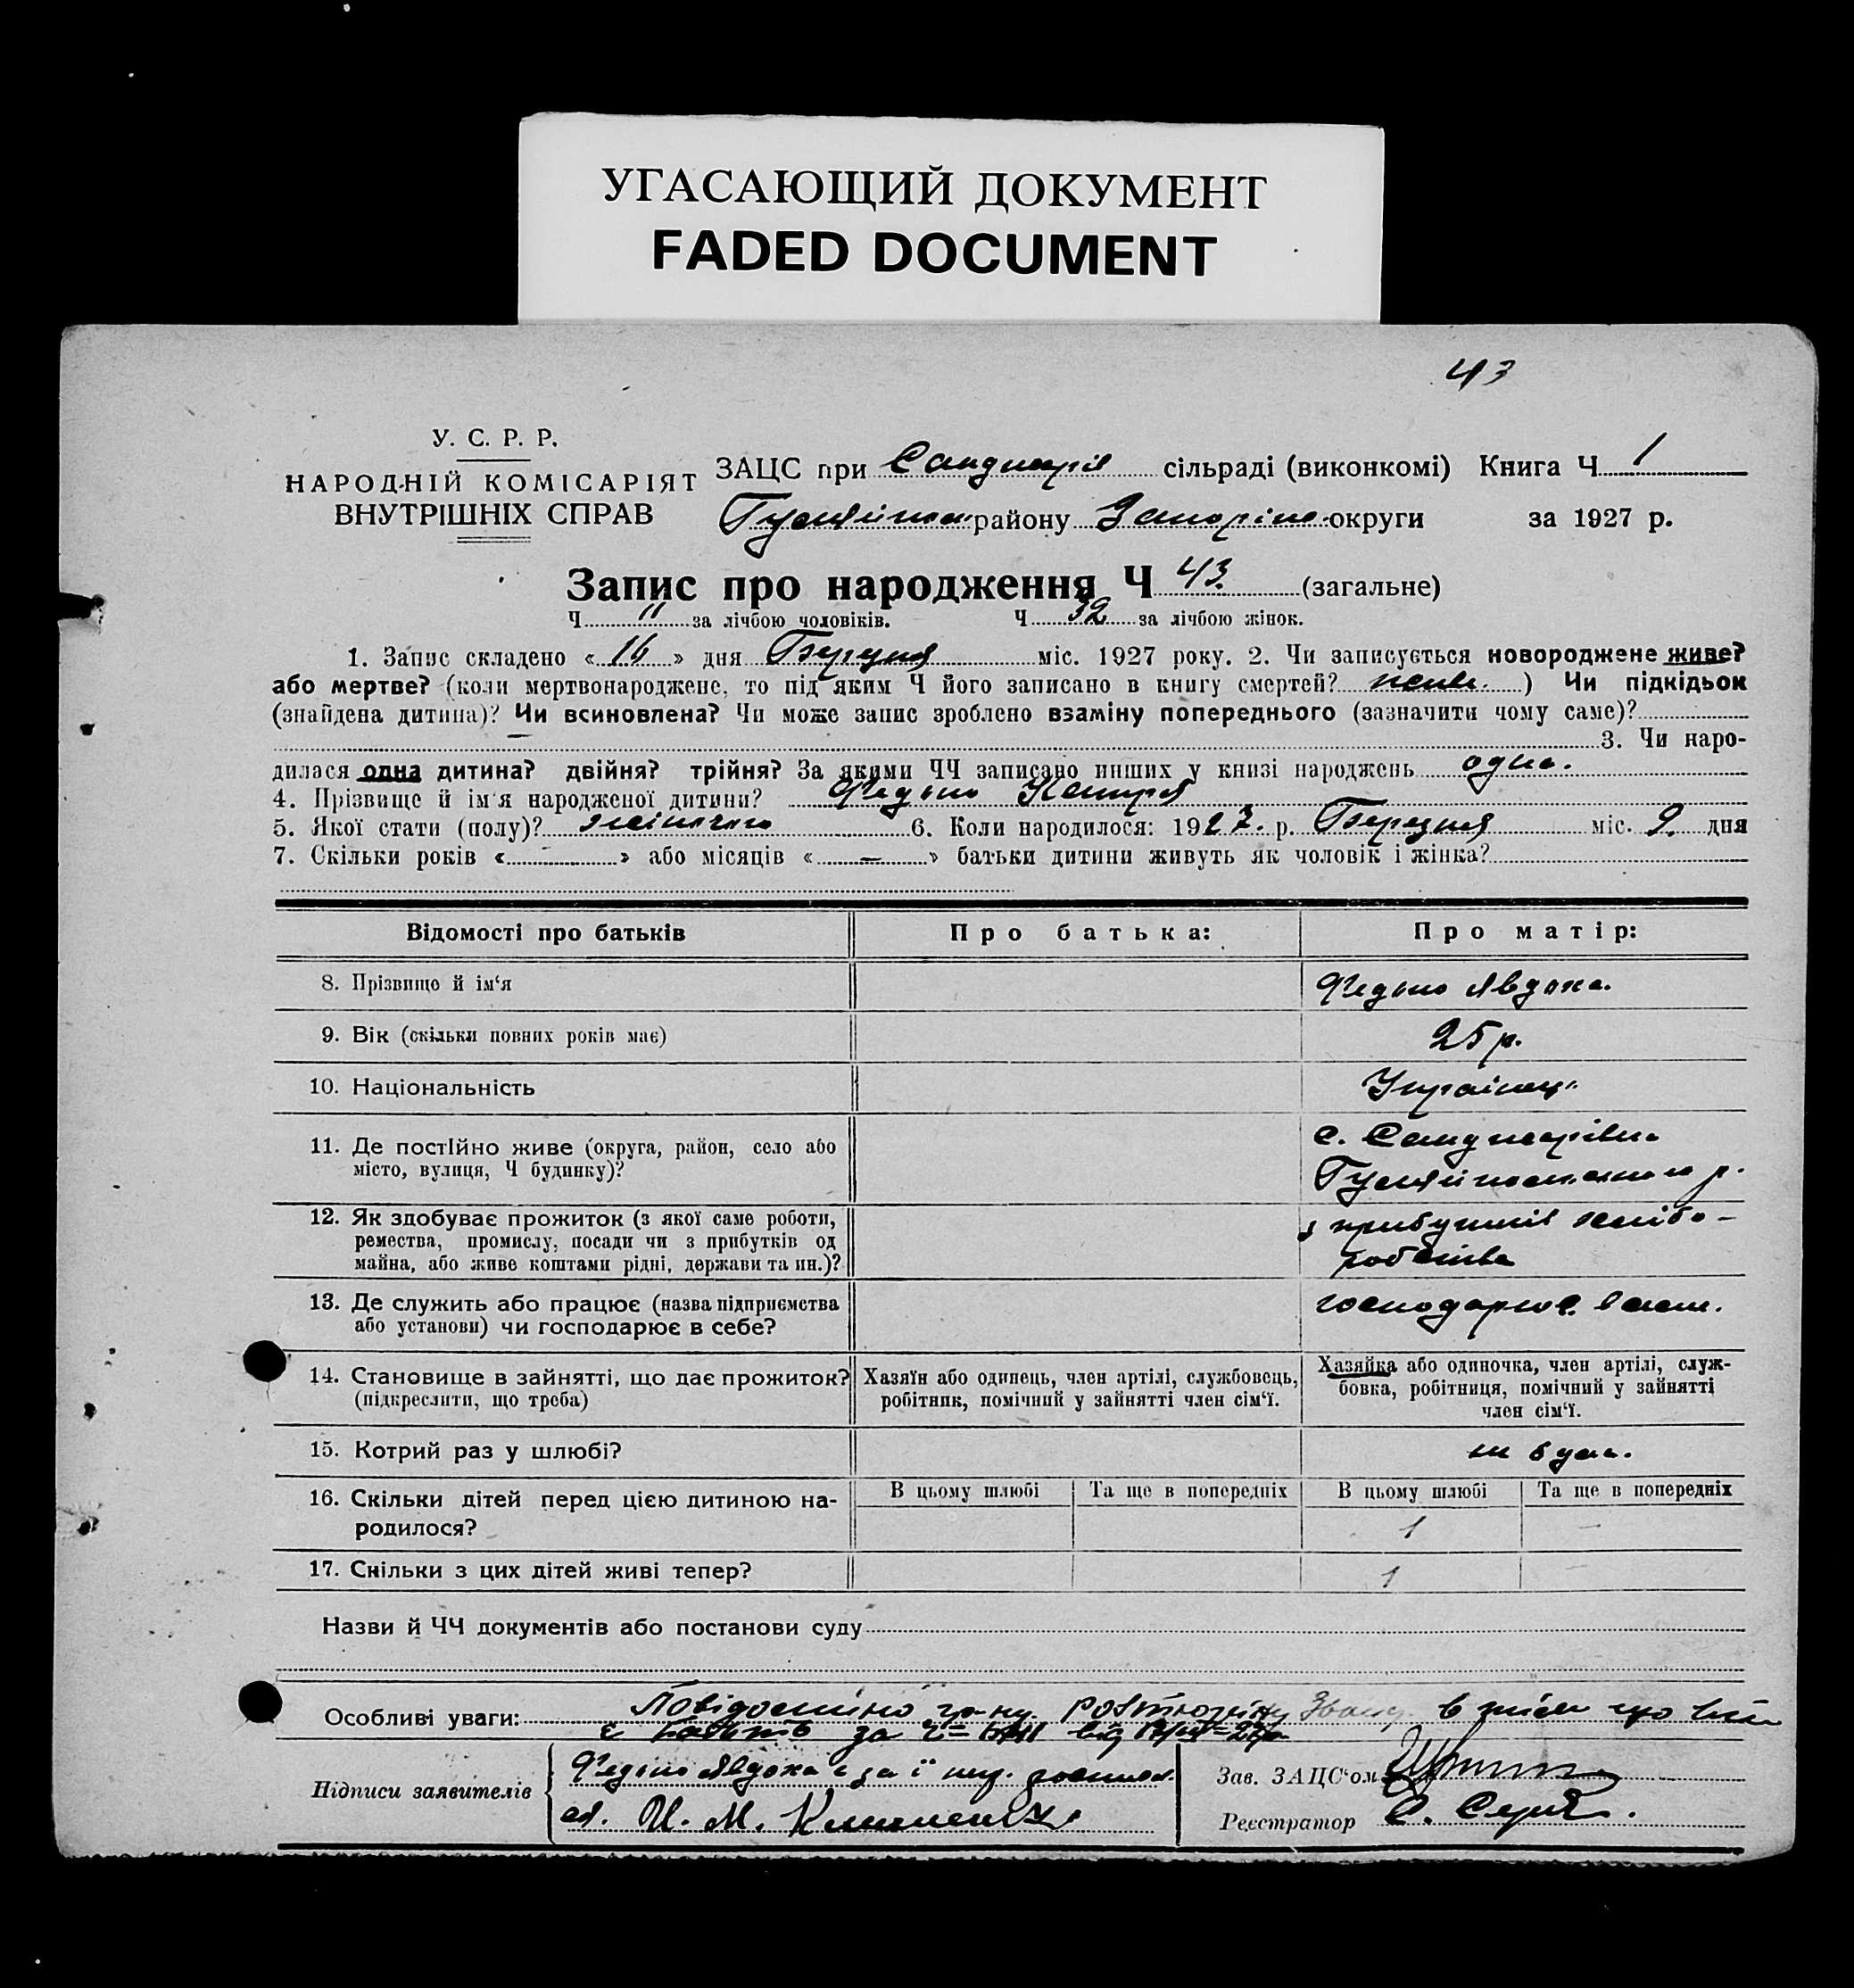 УГАСАЮЩИЙ ДОКУМЕНТ
FADED DOCUMENT
43
У. С. Р. Р.
НАРОДНІЙ КОМІСАРІЯТ
ВНУТРІШНІХ СПРАВ
ЗАЦС при сільраді (виконкомі) Книга Ч 1
району округи за 1927 р.
Запис про народження Ч 43 (загальне)
Ч 11 за лічбою чоловіків. Ч 32 за лічбою жінок.
1. Запис складено « 16 » дня Березня міс. 1927 року. 2. Чи записується новороджене живе?
або мертве? (коли мертвонароджене, то під яким Ч його записано в книгу смертей? живе ) Чи підкідьок
(знайдена дитина)? Чи всиновлена? Чи може запис зроблено взаміну попереднього (зазначити чому саме)?
3. Чи наро-
дилася одна дитина? двійня? трійня? За якими ЧЧ записано инших у книзі народжень одна.
4. Прізвище й ім'я народженої дитини?
5. Якої стати (полу)? жіночого 6. Коли народилося: 1927. р. Березня міс. 9. дня
7. Скільки років « — » або місяців « — » батьки дитини живуть як чоловік і жінка?
Відомості про батьків Про батька: Про матір:
8. Прізвище й ім'я Явдоха.
9. Вік (скільки повних років має) 25 р.
10. Національність Українц.
11. Де постійно живе (округа, район, село або
місто, вулиця, Ч будинку)?
12. Як здобуває прожиток (з якої саме роботи,
ремества, промислу, посади чи з прибутків од
майна, або живе коштами рідні, держави та ин.)?
з прибутків хлібо-
робства
13. Де служить або працює (назва підприємства
або установи) чи господарює в себе?
14. Становище в зайнятті, що дає прожиток?
(підкреслити, що треба)
Хазяїн або одинець, член артілі, службовець,
робітник, помічний у зайнятті член сім'ї.
Хазяйка або одиночка, член артілі, служ-
бовка, робітниця, помічний у зайнятті
член сім'ї.
15. Котрий раз у шлюбі? не була.
16. Скільки дітей перед цією дитиною на-
родилося?
В цьому шлюбі Та ще в попередніх В цьому шлюбі Та ще в попередніх
1 —
17. Скільки з цих дітей живі тепер? 1 —
Назви й ЧЧ документів або постанови суду
Особливі уваги: Повідомлено що
Підписи заявителів Явдоха
И. М.
Зав. ЗАЦС'ом
Реєстратор С.